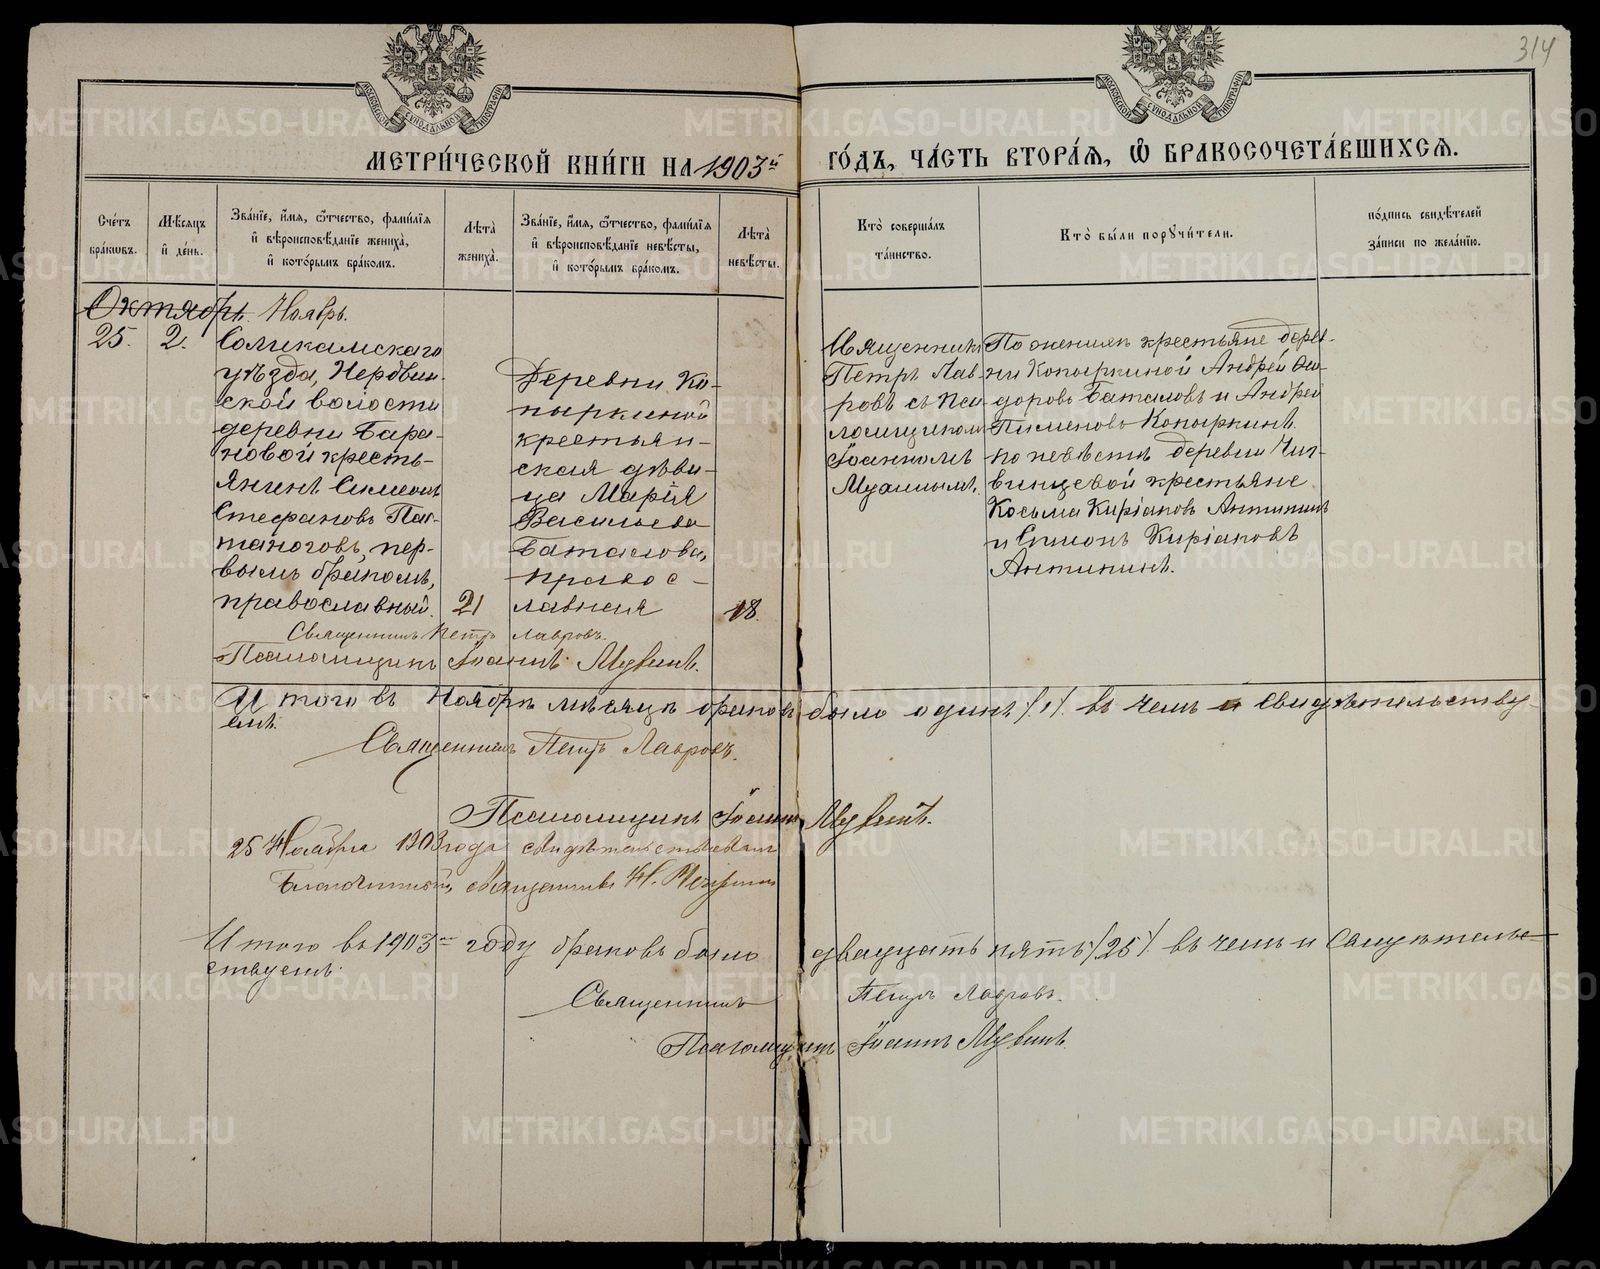 314
МЕТРИ́ЧЕСКОЙ КНИ́ГИ НА 1903й ГО́ДЪ, ЧА́СТЬ ВТОРА́Я, Ѽ БРАКОСОЧЕТА́ВШИХСЯ.
Сче́тъ бра́кѡвъ.
Мѣ́сѧцъ и҆ де́нь.
Зва́нїе, и҆́мѧ, ѻ҆́тчество, фами́лїѧ и҆ вѣроисповѣ́данїе жениха̀, и҆ кото́рымъ бра́комъ.
Лѣ́та̀ жениха̀.
Зва́нїе, и҆́мѧ, ѻ҆́тчество, фами́лїѧ и҆ вѣроисповѣ́данїе невѣ́сты, и҆ кото́рымъ бра́комъ.
Лѣ́та̀ невѣ́сты.
Кто̀ соверша́лъ та́инство.
Кто̀ бы́ли порꙋчи́тели.
по́дпись свидѣ́телей за́писи по жела́нїю.
Октябрь. Ноябрь.
25. 2.
Соликамскаго
уѣзда, Нердвин-
ской волости
деревни Бара-
новой кресть-
янинъ Симеонъ
Стефановъ
первымъ
вымъ бракомъ,
православный. 21
Деревни Ко-
пыркиной
крестьян-
ская дѣви-
ца Марія
Васильева
Баталова,
правос-
лавная 18.
Священникъ
Петръ Лав-
ровъ съ пса-
ломщикомъ
Іоанномъ
По женихѣ крестьяне дерев-
ни Копыркиной Андрей
доровъ Баталовъ и Андрей
Пименовъ Копыркинъ.
по невѣстѣ деревни
крестьяне
Косьма Киріаковъ Антипинъ
и Симонъ Киріаковъ
Антипинъ.
Священникъ Петръ Лавровъ.
Псаломщикъ Іоаннъ
Итого въ Ноябрѣ мѣсяцѣ браковъ было одинъ /1/. въ чемъ и свидѣтельству-
емъ.
Священникъ Петръ Лавровъ.
Псаломщикъ Іоаннъ
25 Ноября 1903 года свидѣтельствовалъ
Благочинный, священникъ Н.
Итого въ 1903 году браковъ было двадцать пять /25/. въ чемъ и свидѣтель-
ствуемъ.
Священникъ Петръ Лавровъ.
Псаломщикъ Іоаннъ
METRIKI.GASO-URAL.RU